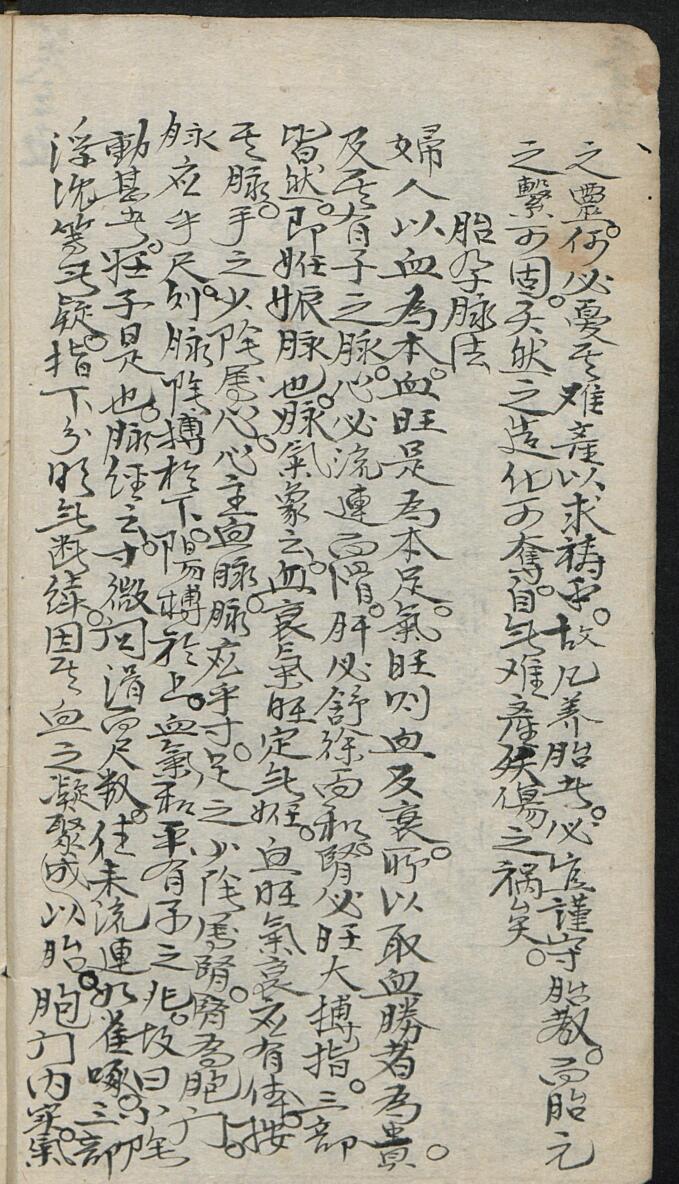 之靈。何必憂其难產以求禱乎。故凡养胎者。必宜謹守胎教。而胎元
之繫可固。天然之造化可奪。自无难產殀傷之禍矣。
胎孕脉法
婦人以血為本。血旺是為本足。氣旺则血反衰。所以取血勝者為貴。
及其有子之脉。心必流連而滑。肝必舒徐而和。腎必旺大搏指。三部
皆然。即姙娠脉也。脉氣象云。血衰氣旺定无姙。血旺氣衰应有体。按
其脉。手之少陰属心。心主血脉。脉应乎寸。足之少陰属腎。腎為胞门。
脉应乎尺。列脉陰搏於下。陽搏於上。血氣和平。有子之兆。故曰。少陰
動甚者。妊子是也。脉经云。寸微関滑而尺数。往来流連如雀啄。三部
浮沈等无疑。指下分明无断续。因其血之凝聚成以胎。胞门内氣